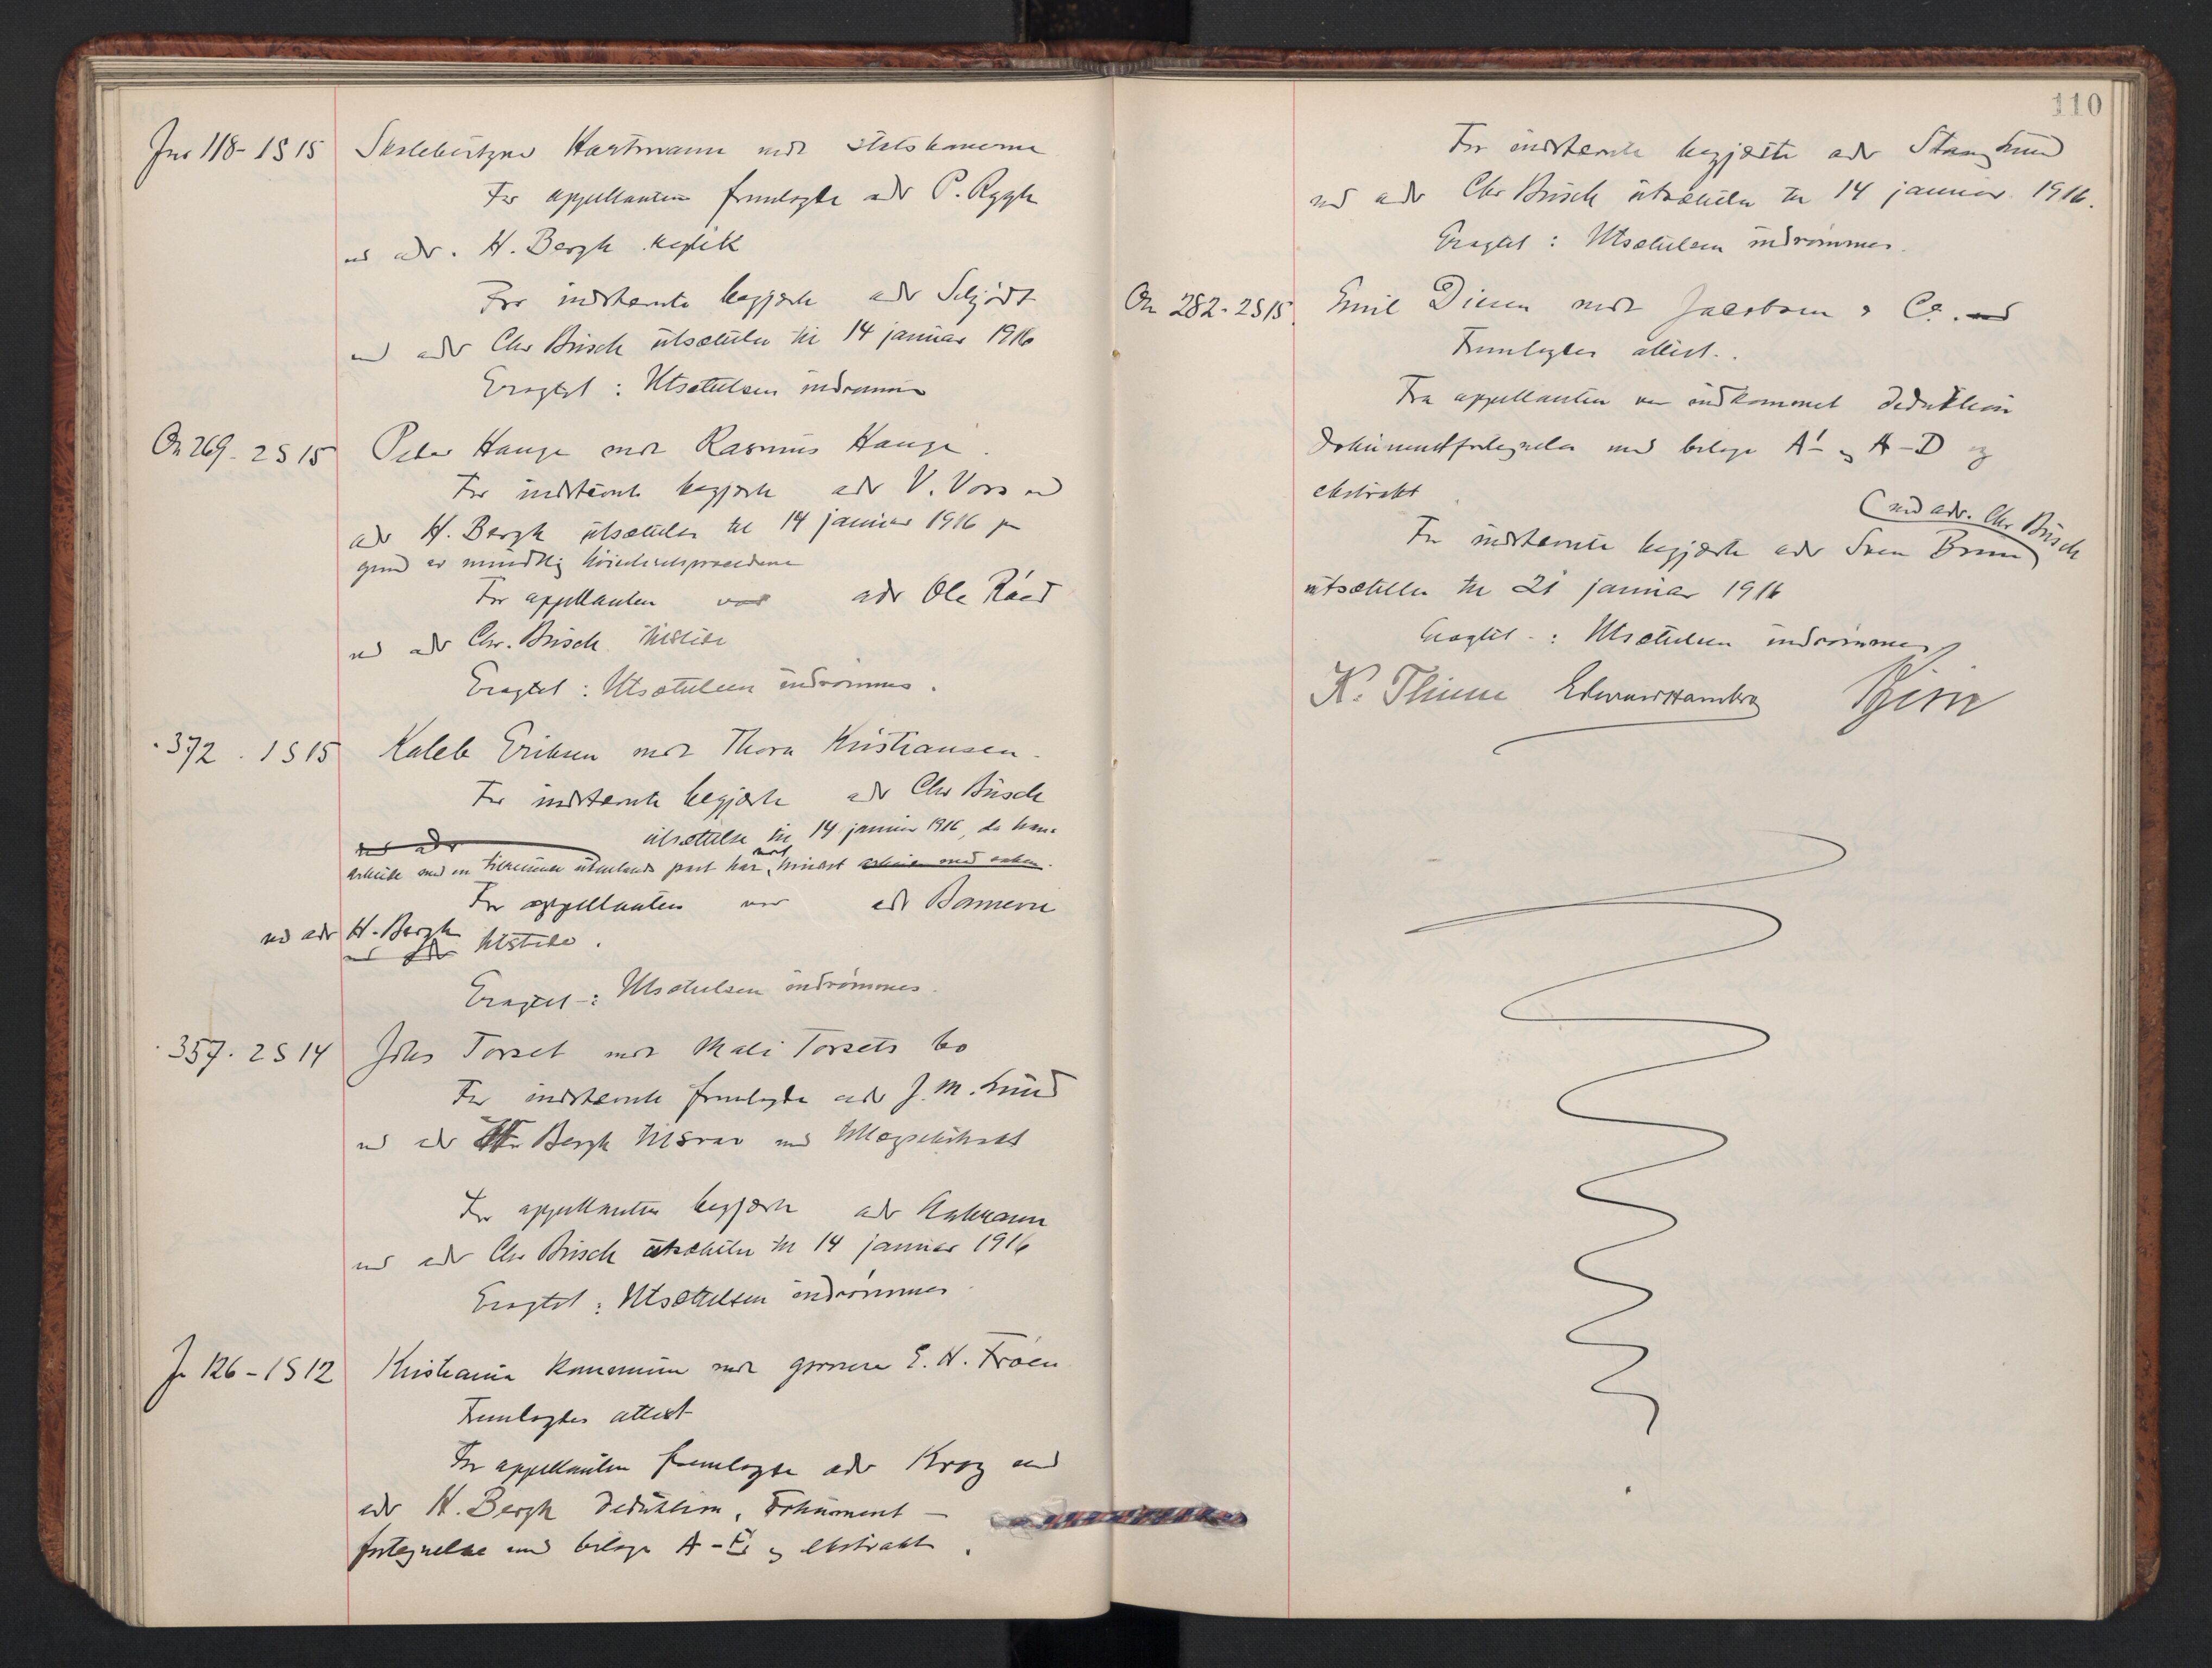 Jnr 118 - 1 S 15 Hartmann mot Statskassen
For appellanten fremlagde adv P. Rygh
ved adv. H. Bergh replik
For indstevnte begjærte adv Schjødt
ved adv Chr Brisch utsættelse til 14 januar 1916
Eragtet : Utsættelsen indrømmes
On 269 - 2 S 15 Peder Hauge mot Rasmus Hauge.
For indstevnte begjærte adv V. Voss ved
adv H. Bergh utsættelse til 14 januar 1916 pa
grund av mundtlig
For appellanten var adv Ole Røed
ved adv Chr. Brisch tilstede
Eragtet : Utsættelsen indrømmes.
372. 1 S 15 Kaleb Eriksen mot Thora Kristiansen.
For indstevnte begjærte adv Chr Brisch
ved adv utsættelse til 14 januar 1916, da hans
arbeide med en part har
For appellanten var adv
ved adv H. Bergh
tilstede.
Eragtet : Utsættelsen indrømmes.
357. 2 S 14 Torset mot Mali Torsets bo
For indstevnte fremlagde adv J. M. Lund
ved adv Bergh tilsvar med
For appellanten begjærte adv
ved adv Chr Brisch utsættelse til 14 januar 1916
Eragtet : Utsættelsen indrømmes
Jn 126 - 1 S 12 Kristiania kommune mot E. H. Frøen
Fremlagdes attest
For appellanten fremlagde adv Krog ved
adv H. Bergh deduktion, dokument-
fortegnelse med bilage A - og ekstrakt.
110
For indstevnte begjærte adv Stang Lund
ved adv Chr Brisch utsættelse til 14 januar 1916.
Eragtet : Utsættelsen indrømmes.
On 282 - 2 S 15 Emil Diesen mot Jacobsen & Co.
Fremlagdes attest.
Fra appellanten var indkommet deduktion
dokumentfortegnelse med bilage A - D og
ekstrakt
(ved adv. Chr Brisch
For indstevnte begjærte adv Sven Brun
utsættelse til 21 januar 1916
Eragtet : Utsættelsen indrømmes